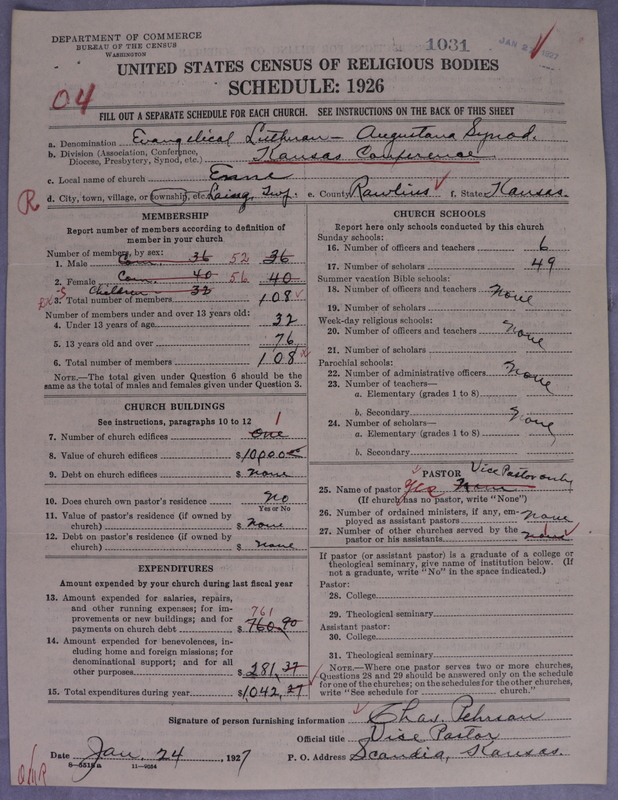 DEPARTMENT OF COMMERCE
BUREAU OF THE CENSUS
WASHINGTON
1031
JAN 2 1927
UNITED STATES CENSUS OF RELIGIOUS BODIES
SCHEDULE: 1926
04
FILL OUT A SEPARATE SCHEDULE FOR EACH CHURCH. SEE INSTRUCTIONS ON THE BACK OF THIS SHEET
a. Denomination Evangelical Lutheran - Augustana Synod.
b. Division (Association, Conference, Diocese, Presbytery, Synod, etc.) Kansas Conference
c. Local name of church Enne
R d. City, town, village, or township, etc. Laing, Twp. e. County Rawlins f. State Kansas.
MEMBERSHIP
Report number of members according to definition of
member in your church
Number of members, by sex:
1. Male Com. 36 52 36
2. Female Com. 40 56 40
Children 32
3. Total number of members 108
Number of members under and over 13 years old:
4. Under 13 years of age 32
5. 13 years old and over 76
6. Total number of members 108
NOTE.—The total given under Question 6 should be the
same as the total of males and females given under Question 3.
CHURCH BUILDINGS
See instructions, paragraphs 10 to 12
7. Number of church edifices One 1
8. Value of church edifices $10,000
9. Debt on church edifices $ None
10. Does church own pastor's residence No
Yes or No
11. Value of pastor's residence (if owned by
church) $ None
12. Debt on pastor's residence (if owned by
church) $ None
EXPENDITURES
Amount expended by your church during last fiscal year
13. Amount expended for salaries, repairs,
and other running expenses; for im-
provements or new buildings; and for
payments on church debt $ 760.90 761
14. Amount expended for benevolences, in-
cluding home and foreign missions; for
denominational support; and for all
other purposes $ 281.37
15. Total expenditures during year $1042.27
CHURCH SCHOOLS
Report here only schools conducted by this church
Sunday schools:
16. Number of officers and teachers 6
17. Number of scholars 49
Summer vacation Bible schools:
18. Number of officers and teachers None
19. Number of scholars
Week-day religious schools:
20. Number of officers and teachers None
21. Number of scholars
Parochial schools:
22. Number of administrative officers None
23. Number of teachers—
a. Elementary (grades 1 to 8)
b. Secondary None
24. Number of scholars—
a. Elementary (grades 1 to 8)
b. Secondary
PASTOR Vice Pastor only
25. Name of pastor Yes None
(If church has no pastor, write "None")
26. Number of ordained ministers, if any, em-
ployed as assistant pastors None
27. Number of other churches served by the
pastor or his assistants None
If pastor (or assistant pastor) is a graduate of a college or
theological seminary, give name of institution below. (If
not a graduate, write "No" in the space indicated.)
Pastor:
28. College
29. Theological seminary
Assistant pastor:
30. College
31. Theological seminary
NOTE.—Where one pastor serves two or more churches,
Questions 28 and 29 should be answered only on the schedule
for one of the churches; on the schedules for the other churches,
write "See schedule for church."
Signature of person furnishing information Chas. Pehrson
Official title Vice Pastor
Date Jan. 24, 1927 P. O. Address Scandia, Kansas.
8—5518a 11—9954